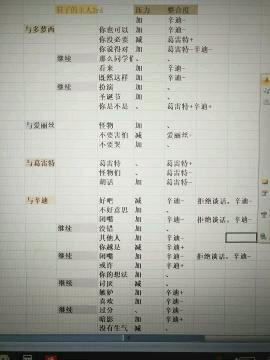 鞋子的主人 压力 整合度
加 辛迪-
与多萝西 你也可以 加 辛迪-
你没必要 减 葛雷特+
你说得对 加 葛雷特-辛迪-
继续 那么同学们 、 、
看来 加 辛迪-
既然这样 加 辛迪-
继续 扮演 加 、
圣诞节 加 、
你是不是 、 葛雷特+辛迪+
与爱丽丝 怪物 加 、
不要害怕 减 爱丽丝-
不要哭 加 、
与葛雷特 葛雷特 、 葛雷特-
怪物们 、 葛雷特-
萌话 加 葛雷特-
与辛迪 好吧 减 辛迪- 拒绝谈话，辛迪-
不好意思 加 辛迪-
闭嘴 加 辛迪- 拒绝谈话，辛迪-
继续 没错 加 、
其他人 加 辛迪-
你越是 减 辛迪+
继续 闭嘴 加 辛迪- 拒绝谈话，辛迪-
或许 加 辛迪+
你的想法 加 、
继续 讨厌 减 、
嫉妒 加 辛迪+
喜欢 加 辛迪-
继续 过分 、 辛迪-
暗影 加 辛迪-
没有生气 减 、